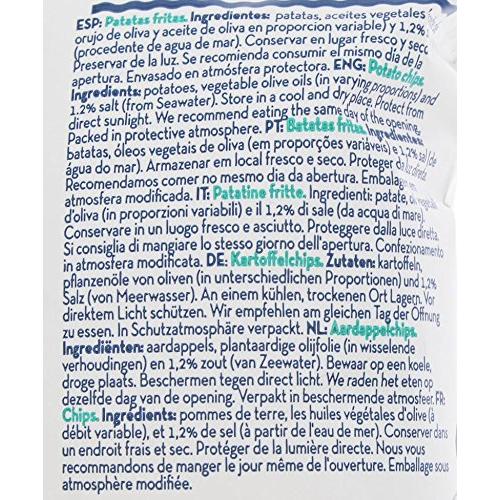 ESP: Patatas fritas. Ingredientes: patatas, aceites vegetales
orujo de oliva y aceite de oliva en proporcion variable) y 1,2%
(procedente de agua de mar). Conservar en lugar fresco y seco
Preservar de la luz. Se recomienda consumir el mismo día de la
apertura. Envasado en atmósfera protectora. ENG: Potato chips.
Ingredients: potatoes, vegetable olive oils (in varying proportions) and
1.2% salt (from Seawater). Store in a cool and dry place. Protect from
direct sunlight. We recommend eating the same day of the opening.
Packed in protective atmosphere. PT: Batatas fritas. Ingredientes:
batatas, óleos vegetais de oliva (em proporções variáveis) e 1,2% sal (de
água do mar). Armazenar em local fresco e seco. Proteger da luz direta.
Recomendamos comer no mesmo dia da abertura. Embalagem
atmosfera modificada. IT: Patatine fritte. Ingredienti: patate, oli vegetali
d'oliva (in proporzioni variabili) e il 1,2% di sale (da acqua di mare)
Conservare in un luogo fresco e asciutto. Proteggere dalla luce diretta.
Si consiglia di mangiare lo stesso giorno dell'apertura. Confezionamento
in atmosfera modificata. DE: Kartoffelchips. Zutaten: kartoffeln,
pflanzenöle von oliven (in unterschiedlichen Proportionen) und 1,2%
Salz (von Meerwasser). An einem kühlen, trockenen Ort Lagern. Vor
direktem Licht schützen. Wir empfehlen am gleichen Tag der Öffnung
zu essen. In Schutzatmosphäre verpackt. NL: Aardappelchips.
Ingrediënten: aardappels, plantaardige olijfolie (in wisselende
verhoudingen) en 1,2% zout (van Zeewater). Bewaar op een koele,
droge plaats. Beschermen tegen direct licht. We raden het eten op
dezelfde dag van de opening. Verpakt in beschermende atmosfeer. FR:
Chips. Ingrédients: pommes de terre, les huiles végétales d'olive (à
débit variable), et 1,2% de sel (à partir de l'eau de mer). Conserver dans
un endroit frais et sec. Protéger de la lumière directe. Nous vous
recommandons de manger le jour même de l'ouverture. Emballage sous
atmosphère modifiée.